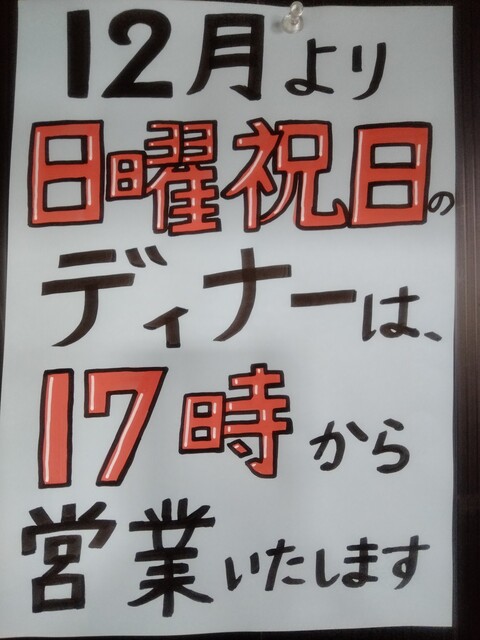 12月より
日曜祝日の
ディナーは、
17時から
営業いたします